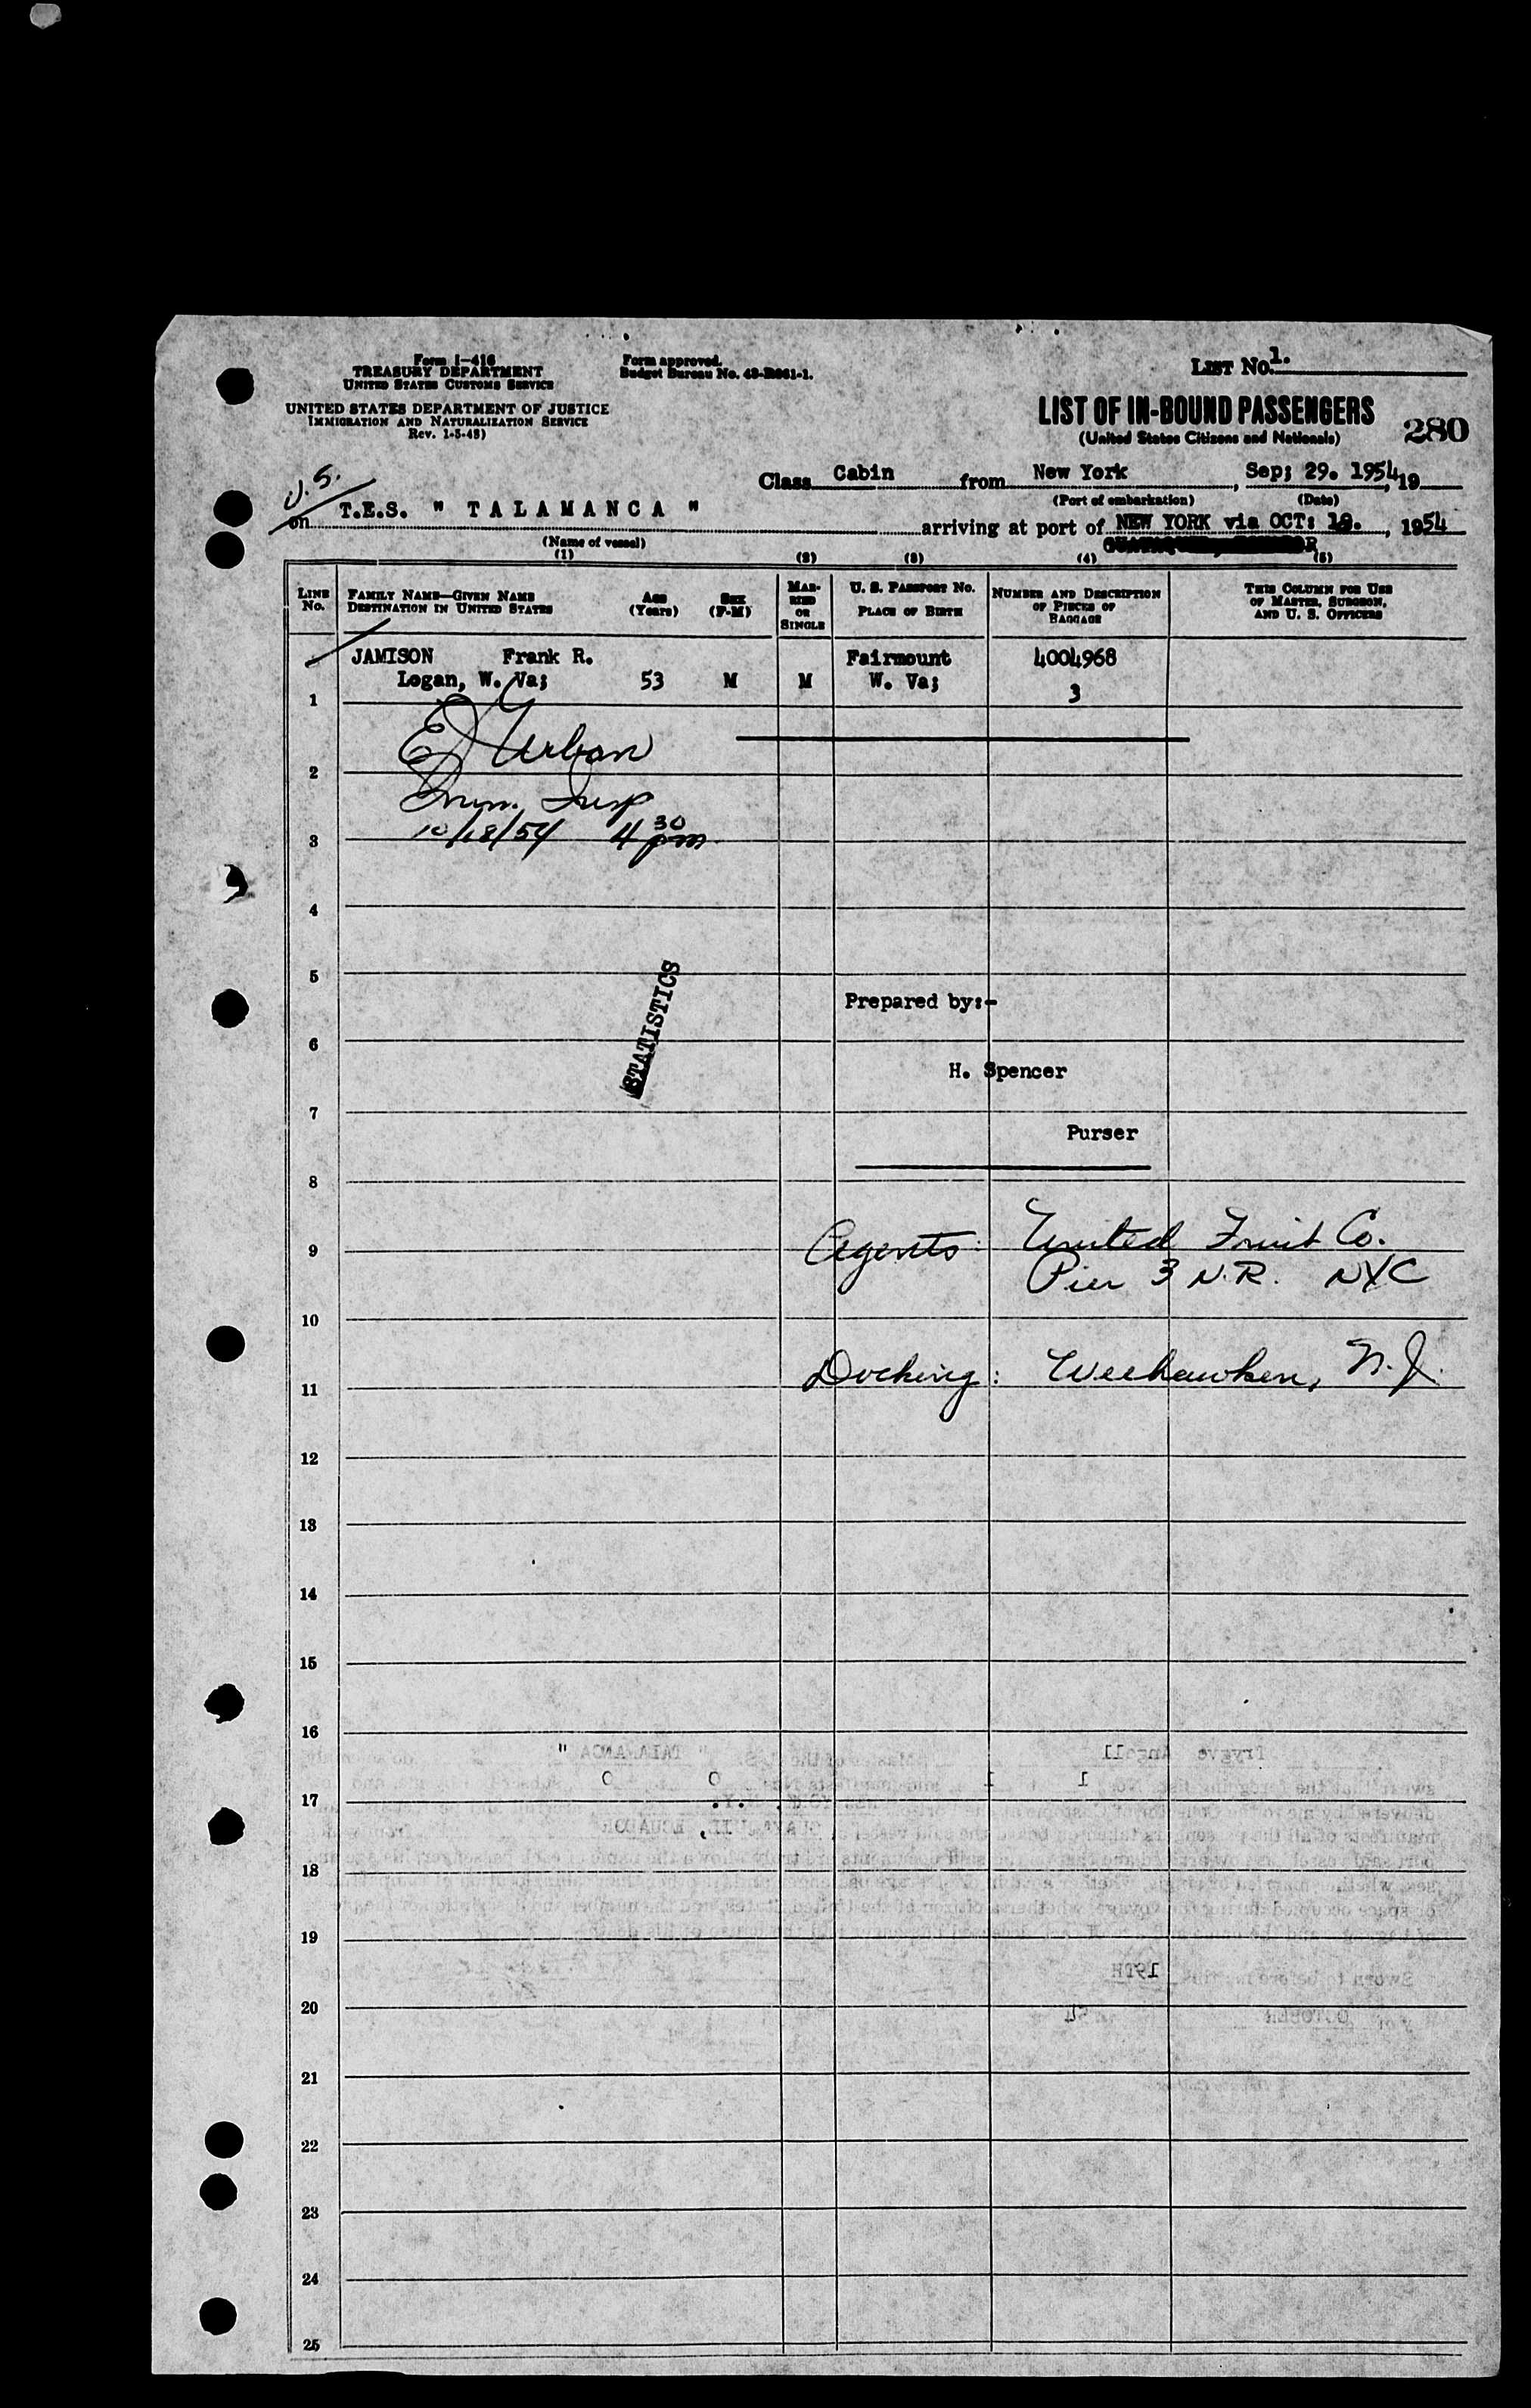 Form I-416
TREASURY DEPARTMENT
UNITED STATES CUSTOMS SERVICE
UNITED STATES DEPARTMENT OF JUSTICE
IMMIGRATION AND NATURALIZATION SERVICE
Rev. 1-3-45)
Form approved.
Budget Bureau No. 43-R061-1.
LIST No. 1.
LIST OF IN-BOUND PASSENGERS
(United States Citizens and Nationals)
280
U.S.
Class Cabin from New York, Sep; 29. 1954, 19
(Port of embarkation) (Date)
on T.E.S. " T A L A M A N C A " arriving at port of NEW YORK via OCT: 19., 1954
(Name of vessel)
(1) (2) (3) (4) (5)
LINE No. FAMILY NAME—GIVEN NAME DESTINATION IN UNITED STATES AGE (Years) SEX (F-M) MARRIED OR SINGLE U. S. PASSPORT No. PLACE OF BIRTH NUMBER AND DESCRIPTION OF PIECES OF BAGGAGE THIS COLUMN FOR USE OF MASTER, SURGEON, AND U. S. OFFICERS
JAMISON Frank R. Fairmount 4004968
Logan, W. Va; 53 M M W. Va; 3
1
E J Urban
2
Imm. Insp
3 10/18/54 4 30 pm
4
5
STATISTICS
Prepared by:-
6
H. Spencer
7
Purser
8
9 Agents: United Fruit Co.
Pier 3 N.R. NYC
10
11 Docking: Weehawken, N.J.
12
13
14
15
16
Trygve Angell " TALAMANCA "
1 1 0 0
17
GUAYAQUIL, ECUADOR
18
19
Sworn to before me this 19TH
20
OCTOBER 54
21
22
23
24
25